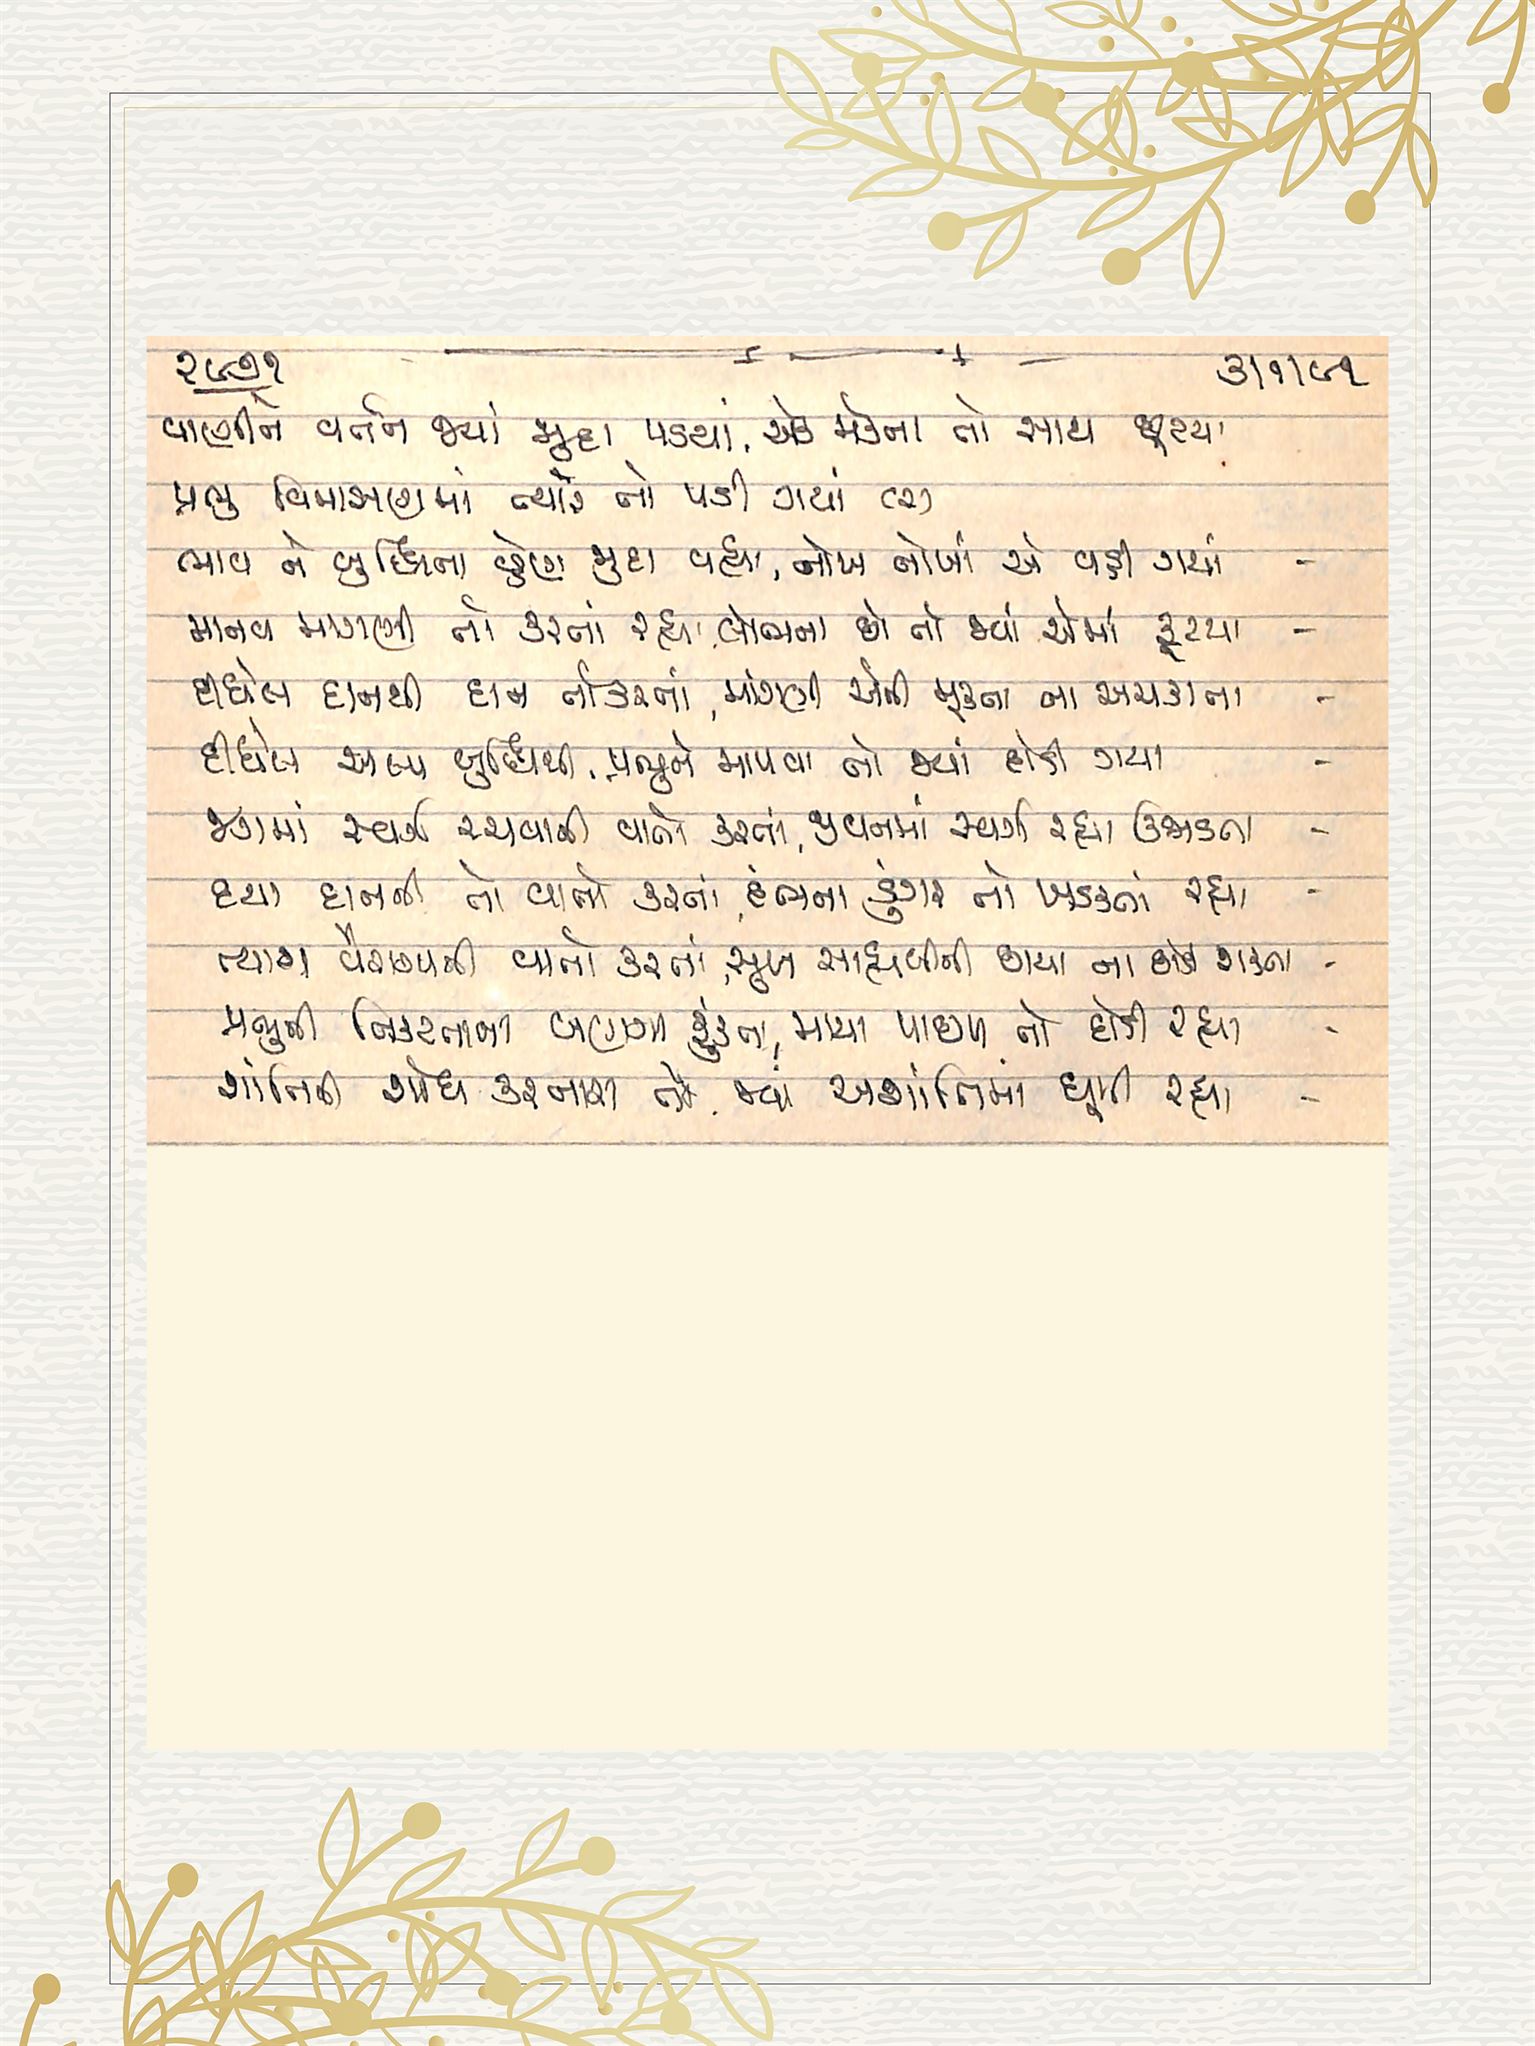 ૨૯૭૧ ૩/૧/૯૧
વાણીને વર્તન જ્યાં જુદા પડયાં, એક મેકના તો સાથ છૂટયા
પ્રભુ વિમાસણમાં ત્યારે તો પડી ગયાં (૨)
ભાવ ને બુદ્ધિના છેણ જુદા વહ્યા, નોખ નોખાં એ વહી ગયાં -
માનવ માગણી તો કરતાં રહ્યા, લોભના છો તો જ્યાં એમાં ફૂટયા -
દીધેલ દાનથી દાન તો કરતાં, માંગણી એની મૂકતા ના અચકાતા -
દીધેલ અલ્પ બુદ્ધિથી, પ્રભુને માપવા તો જ્યાં દોડી ગયા -
જગમાં સ્વર્ગ રચવાની વાતો કરતાં, જીવનમાં સ્વર્ગ રહ્યા ઉજાડતા -
દયા દાનની તો વાતો કરતાં, દંભના ડુંગર તો ખડકતાં રહ્યા -
ત્યાગ વૈરાગ્યની વાતો કરતાં, સુખ સાહ્યબીની છાયા ના છોડી શકતા -
પ્રભુની નિકટતાની બણગા ફુંકતા, માયા પાછળ તો દોડી રહ્યા -
શાંતિની શોધ કરનારા તો, જ્યાં અશાંતિમાં ઘૂમી રહ્યા -